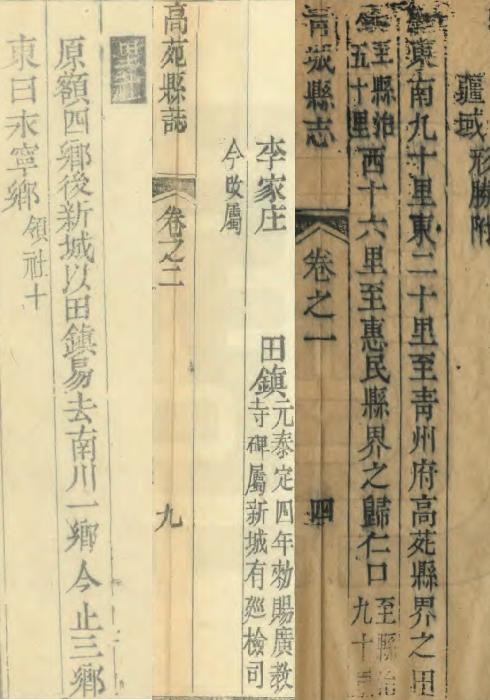 疆域形勝附
東南九十里東二十里至青州府高苑縣界之田
鎮至縣治五十里西十六里至惠民縣界之歸仁口至縣治九十里
青城縣志 卷之一 四
李家庄 田鎮元泰定四年勑賜廣教
寺碑屬新城有廵檢司
今改屬
高苑縣誌 卷之二 九
里社
原額四鄉後新城以田鎮易去南川一鄉今止三鄉
東曰永寧鄉領社十